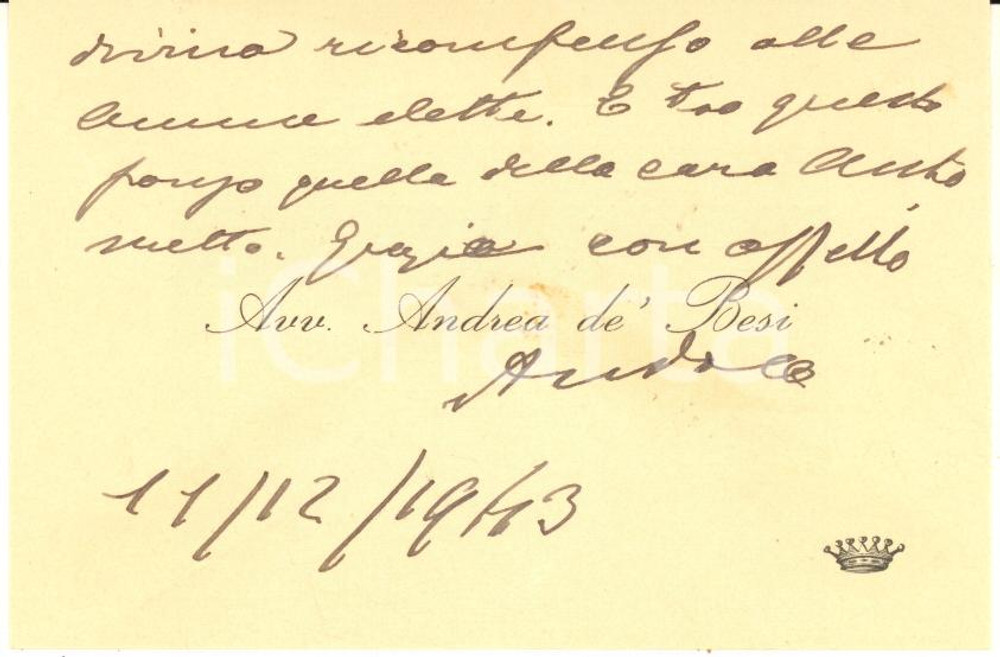 divina ricompensa alle
anime elette. E tra queste
pongo quella della cara Anto
nietta. Grazie con affetto
Avv. Andrea de' Besi
Andrea
11/12/1943
iCharta